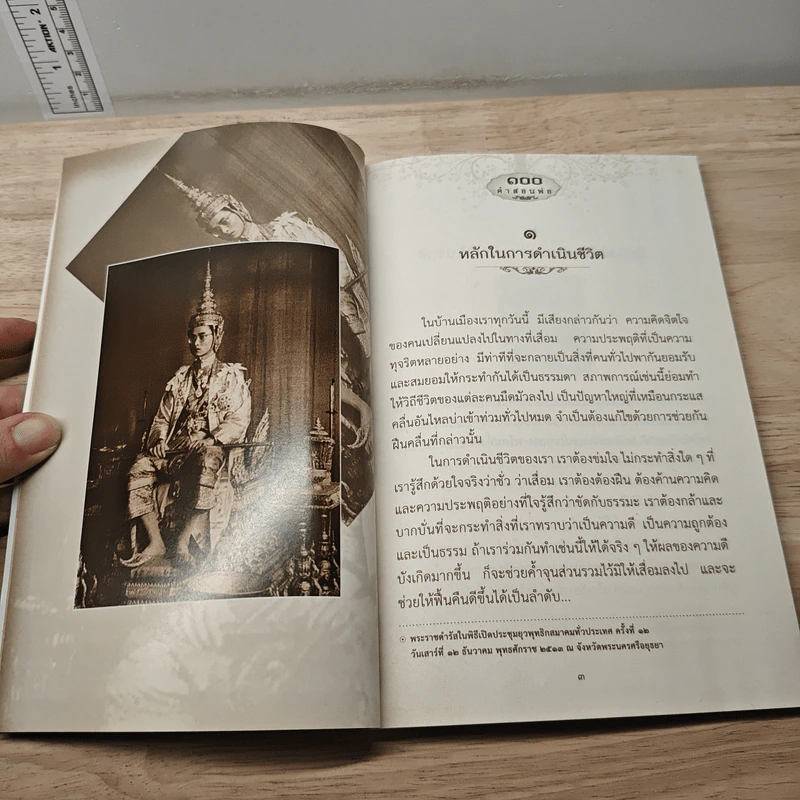 2
AKTION
1
Inches
5
4
3
2
1
๑๐๐
คำสอนพ่อ
๑
หลักในการดำเนินชีวิต
ในบ้านเมืองเราทุกวันนี้ มีเสียงกล่าวกันว่า ความคิดจิตใจ
ของคนเปลี่ยนแปลงไปในทางที่เสื่อม ความประพฤติที่เป็นความ
ทุจริตหลายอย่าง มีท่าทีที่จะกลายเป็นสิ่งที่คนทั่วไปพากันยอมรับ
และสมยอมให้กระทำกันได้เป็นธรรมดา สภาพการณ์เช่นนี้ย่อมทำ
ให้วิถีชีวิตของแต่ละคนมืดมัวลงไป เป็นปัญหาใหญ่ที่เหมือนกระแส
คลื่นอันไหลบ่าเข้าท่วมทั่วไปหมด จำเป็นต้องแก้ไขด้วยการช่วยกัน
ฝืนคลื่นที่กล่าวนั้น
ในการดำเนินชีวิตของเรา เราต้องข่มใจ ไม่กระทำสิ่งใด ๆ ที่
เรารู้สึกด้วยใจจริงว่าชั่ว ว่าเสื่อม เราต้องต้องฝืน ต้องค้านความคิด
และความประพฤติอย่างที่ใจรู้สึกว่าขัดกับธรรมะ เราต้องกล้าและ
บากบั่นที่จะกระทำสิ่งที่เราทราบว่าเป็นความดี เป็นความถูกต้อง
และเป็นธรรม ถ้าเราร่วมกันทำเช่นนี้ให้ได้จริง ๆ ให้ผลของความดี
บังเกิดมากขึ้น ก็จะช่วยค้ำจุนส่วนรวมไว้มิให้เสื่อมลงไป และจะ
ช่วยให้ฟื้นคืนดีขึ้นได้เป็นลำดับ...
พระราชดำรัสในพิธีเปิดประชุมยุวพุทธิกสมาคมทั่วประเทศ ครั้งที่ ๑๒
วันเสาร์ที่ ๑๒ ธันวาคม พุทธศักราช ๒๕๑๓ ณ จังหวัดพระนครศรีอยุธยา
๓